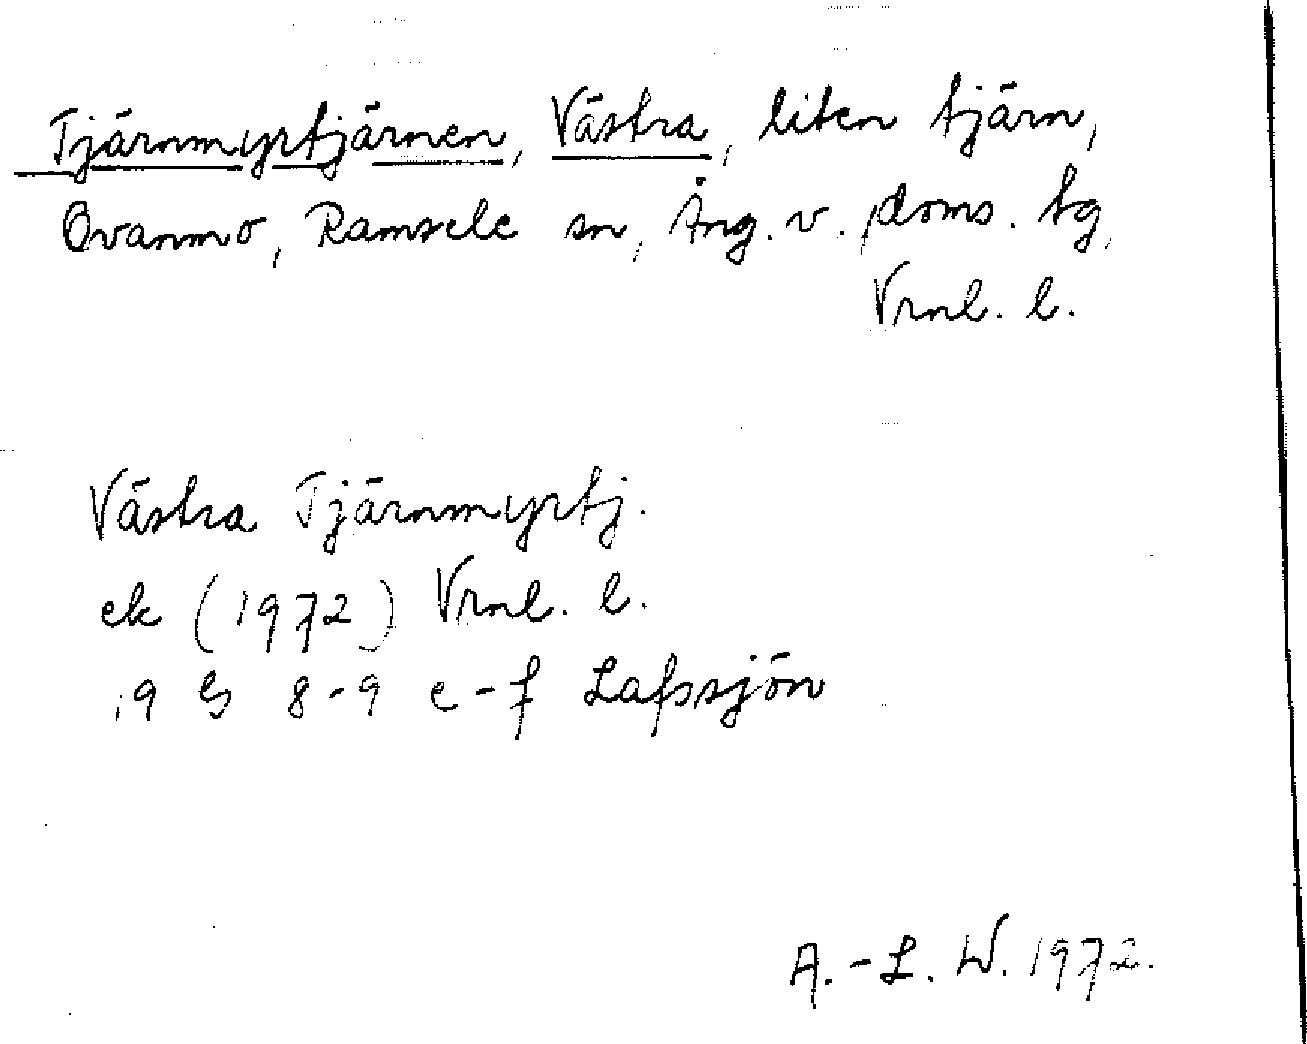 Tjärnmyrtjärnen, Västra, liten tjärn,
Ovanmo, Ramsele sn, Ång. v. doms. tg,
Vrnl. l.
Västra Tjärnmyrtj.
ek (1972) Vrnl. l.
19 G 8-9 e-f Lafssjön
A.-L. W. 1972.